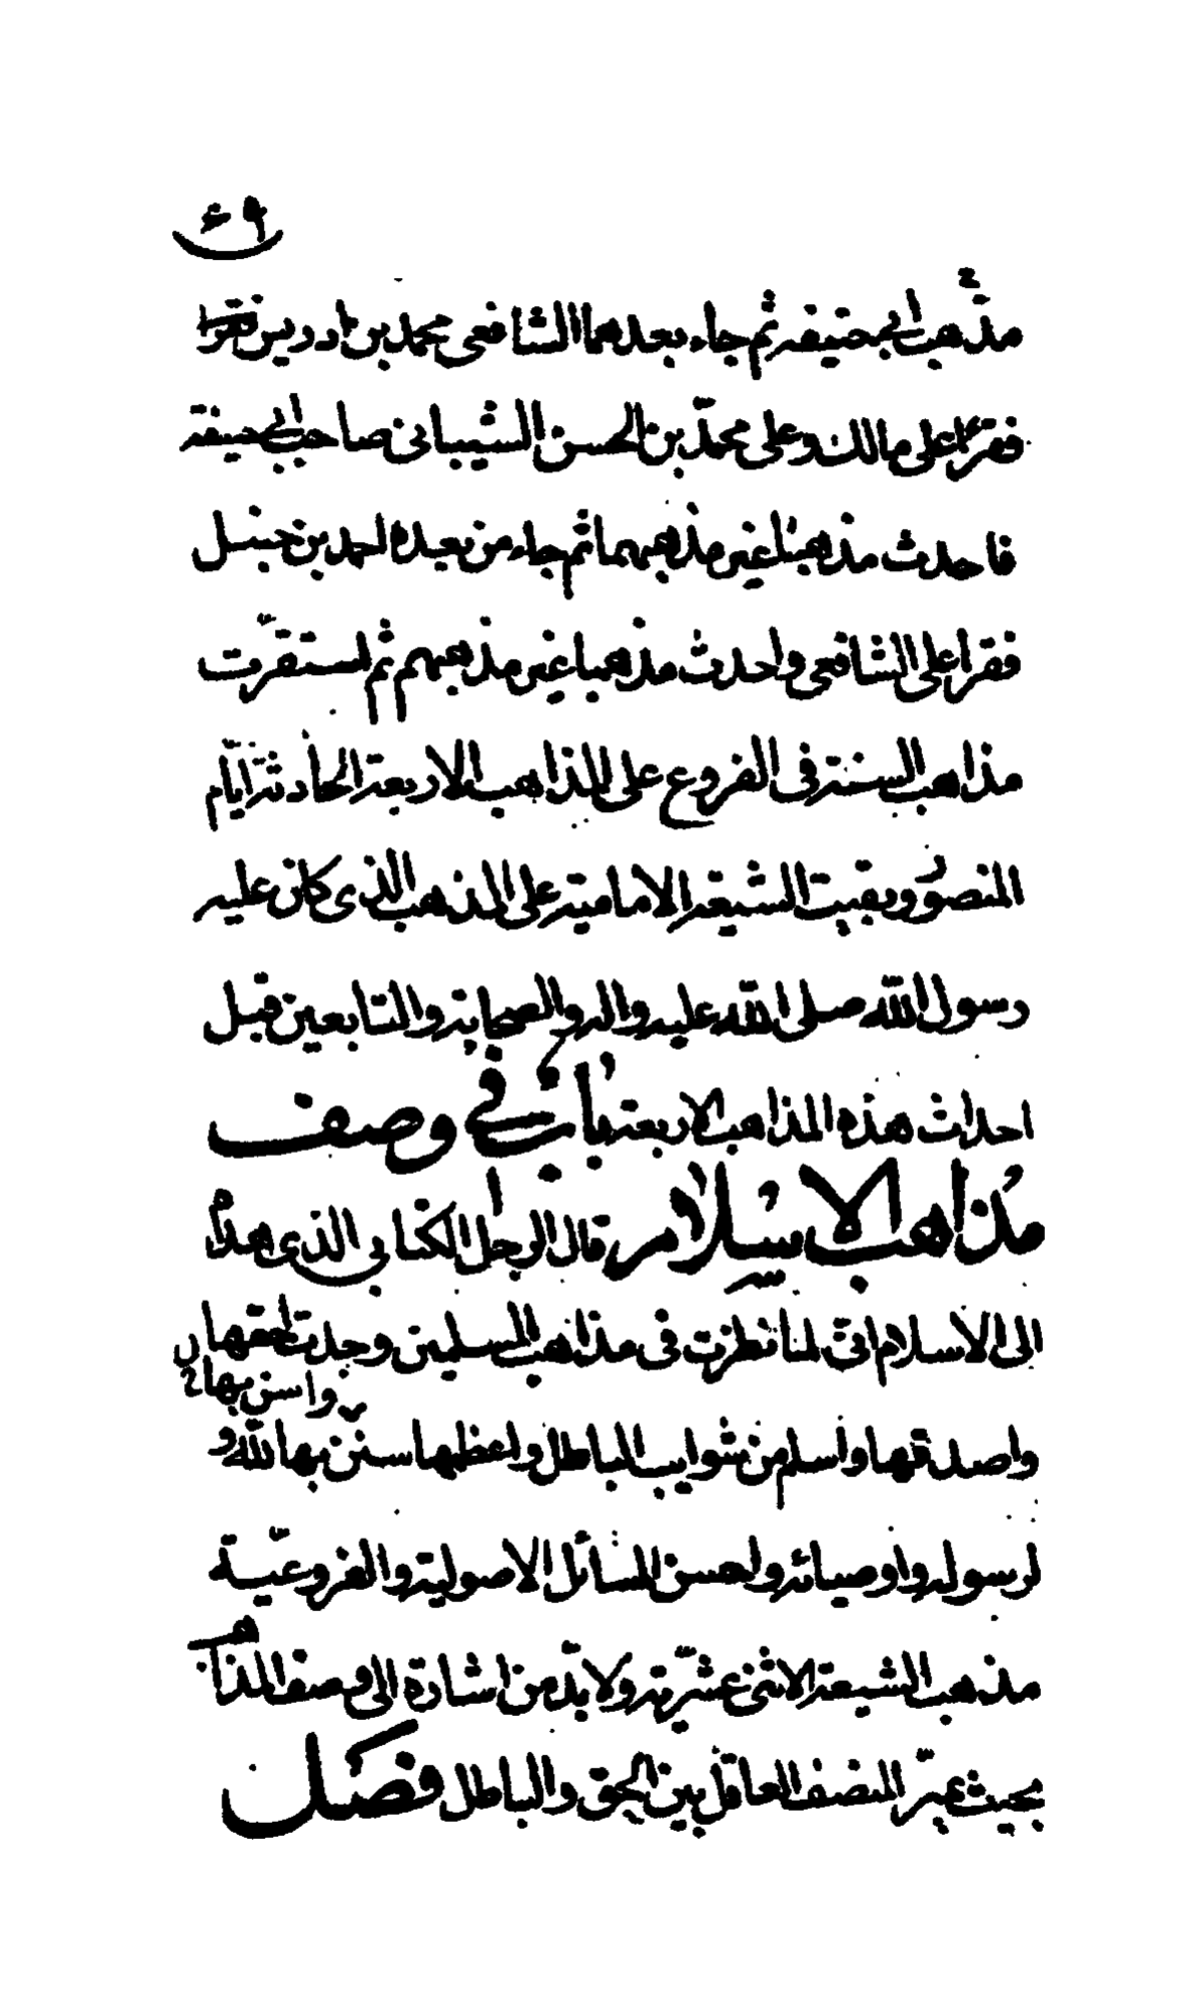 ٤٩
مذهب ابى حنيفه ثم جاء بعدهما الشافعى محمد بن ادريس
فقرا على مالك وعلى محمّد بن الحسن الشيبانى صاحب ابى حنيفه
فاحدث مذهبًا غير مذهبهما ثم جاء من بعده احمد بن حنبل
فقرا على الشافعى واحدث مذهبا غير مذهبهم ثم استقرّت
مذاهب السنته فى الفروع على المذاهب الاربعة الحادثة ايّام
المنصور وبقيت الشيعة الامامية على المذهب الذى كان عليه
رسول اللّه صلى اللّه عليه واله والصحابة والتابعين قبل
احداث هذه المذاهب الاربعة بابٌ فى وصف
مذاهب الاسلام قال الرجل الكتابى الذى هداه
الى الاسلام انى لما نظرت فى مذاهب المسلمين وجدت احقها
واصدقها واسلم من شوايب الباطل واعظمها سنن بها للّه و
واسن بها
لرسوله واوصيائه واحسن المسائل الاصولية والفروعيّة
مذهب الشيعة الاثنى عشريّة ولابدّ من اشارة الى وصف المذاهب
بحيث يميّز المنصف العاقل بين الحق والباطل فصل